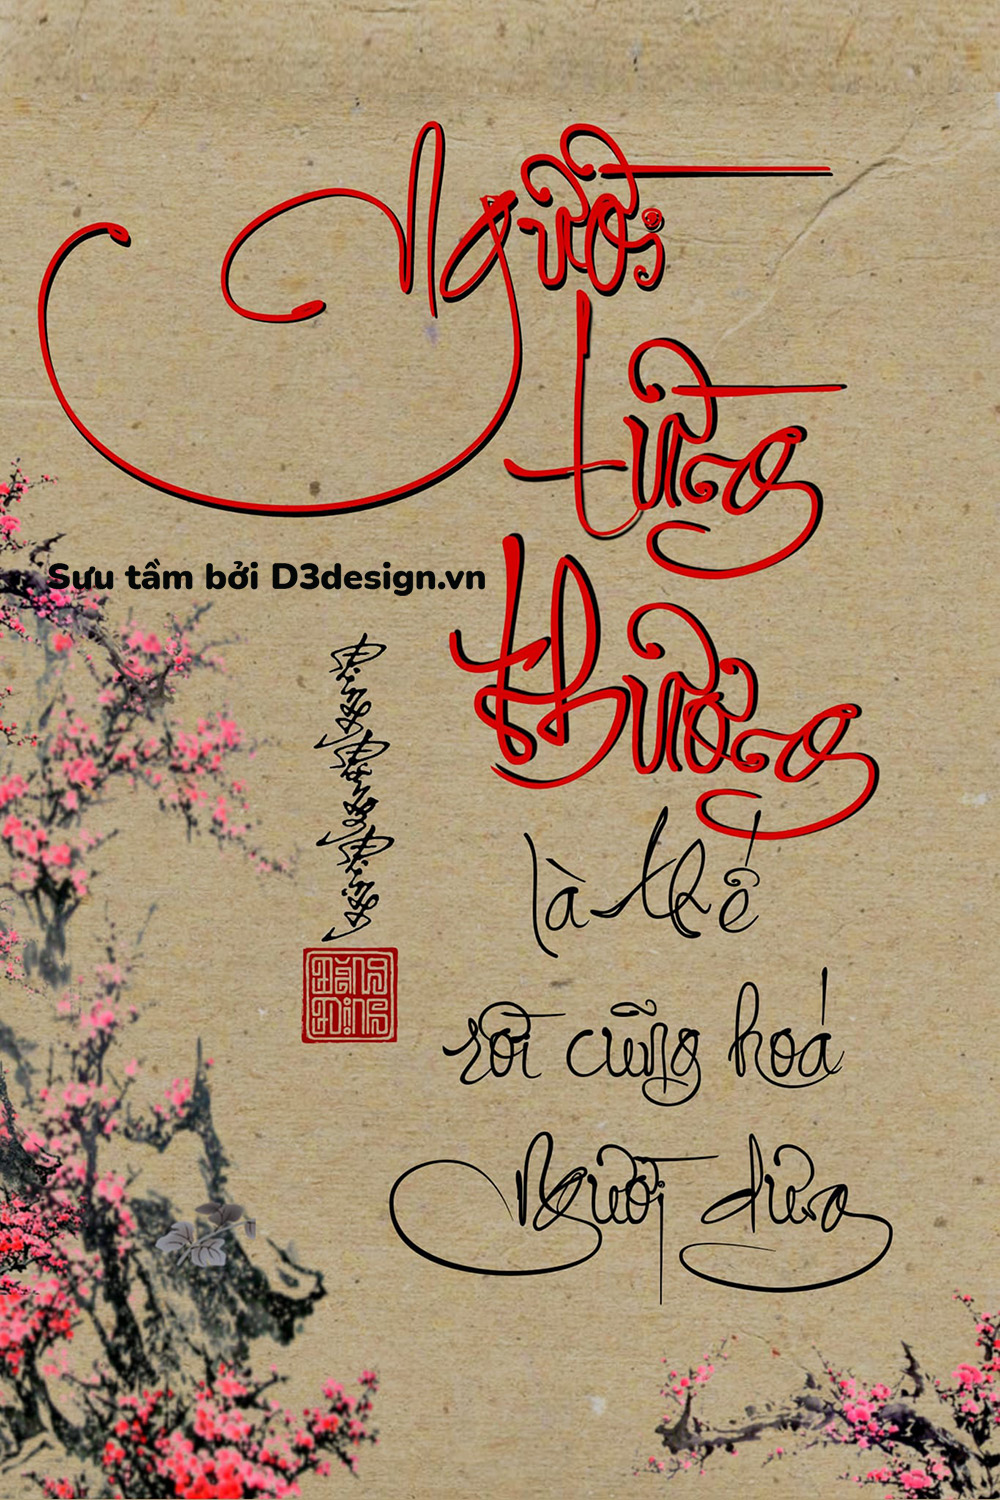 Người
từng
thương
Sưu tầm bởi D3design.vn
là thế
rồi cũng hoá
Người dưng
Đăng
Định